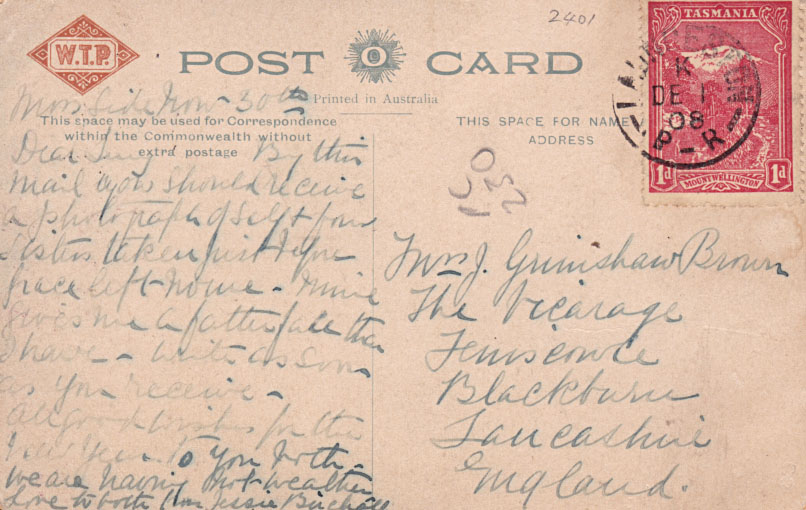 2401
W.T.P.
POST CARD
Printed in Australia
This space may be used for Correspondence
within the Commonwealth without
extra postage
THIS SPACE FOR NAME
ADDRESS
TASMANIA
DE 1
08
1d 1d
MOUNT WELLINGTON
Moss Side Nov 30th
Dear By this
mail you should receive
a photograph of Self & four
Sisters taken just before
Grace left home - Mine
gives me a fatter face than
I have - write as soon
as you receive -
all good wishes for the
New Year to you both -
we are having hot weather
Love to both from Jessie Birchall
Mrs J. Grimshaw Brown
The Vicarage
Feniscowle
Blackburn
Lancashire
England.